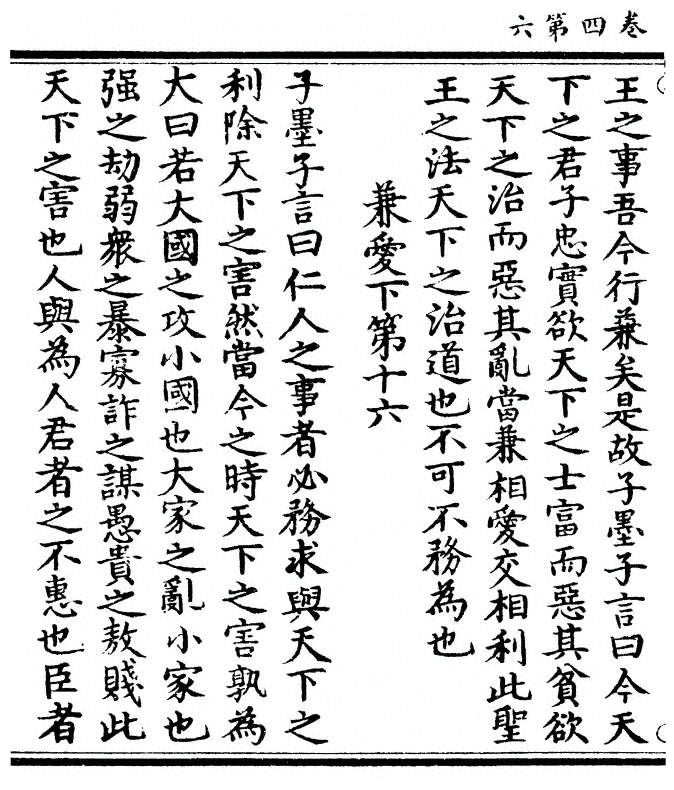 卷四第六
王之事吾今行兼矣是故子墨子言曰今天
下之君子忠實欲天下之士富而惡其貧欲
天下之治而惡其亂當兼相愛交相利此聖
王之法天下之治道也不可不務為也
兼愛下第十六
子墨子言曰仁人之事者必務求與天下之
利除天下之害然當今之時天下之害孰為
大曰若大國之攻小國也大家之亂小家也
强之劫弱衆之暴寡詐之謀愚貴之敖賤此
天下之害也人與為人君者之不惠也臣者